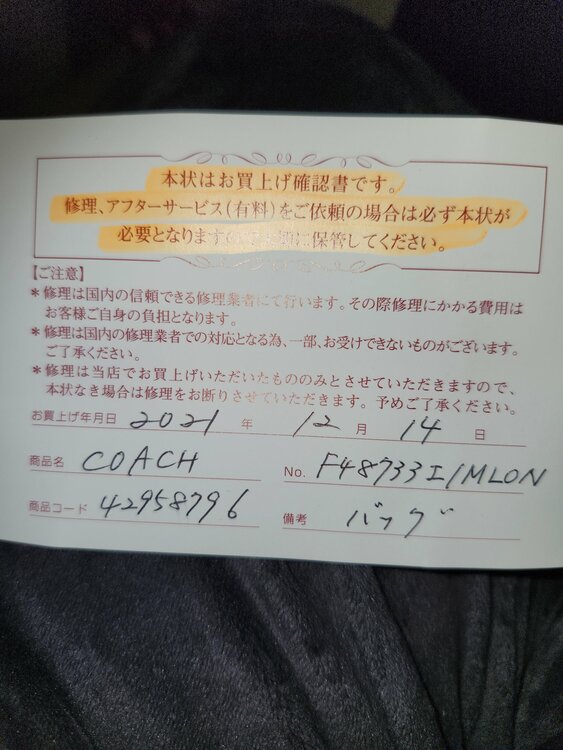 本状はお買上げ確認書です。
修理、アフターサービス(有料)をご依頼の場合は必ず本状が
必要となりますに保管してください。
【ご注意】
＊修理は国内の信頼できる修理業者にて行います。その際修理にかかる費用は
お客様ご自身の負担となります。
＊修理は国内の修理業者での対応となる為、一部、お受けできないものがございます。
ご了承ください。
＊修理は当店でお買上げいただいたもののみとさせていただきますので、
本状なき場合は修理をお断りさせていただきます。予めご了承ください。
お買上げ年月日 2021 年 12 月 14 日
商品名 COACH No. F48733I/MLON
商品コード 42958796 備考 バッグ